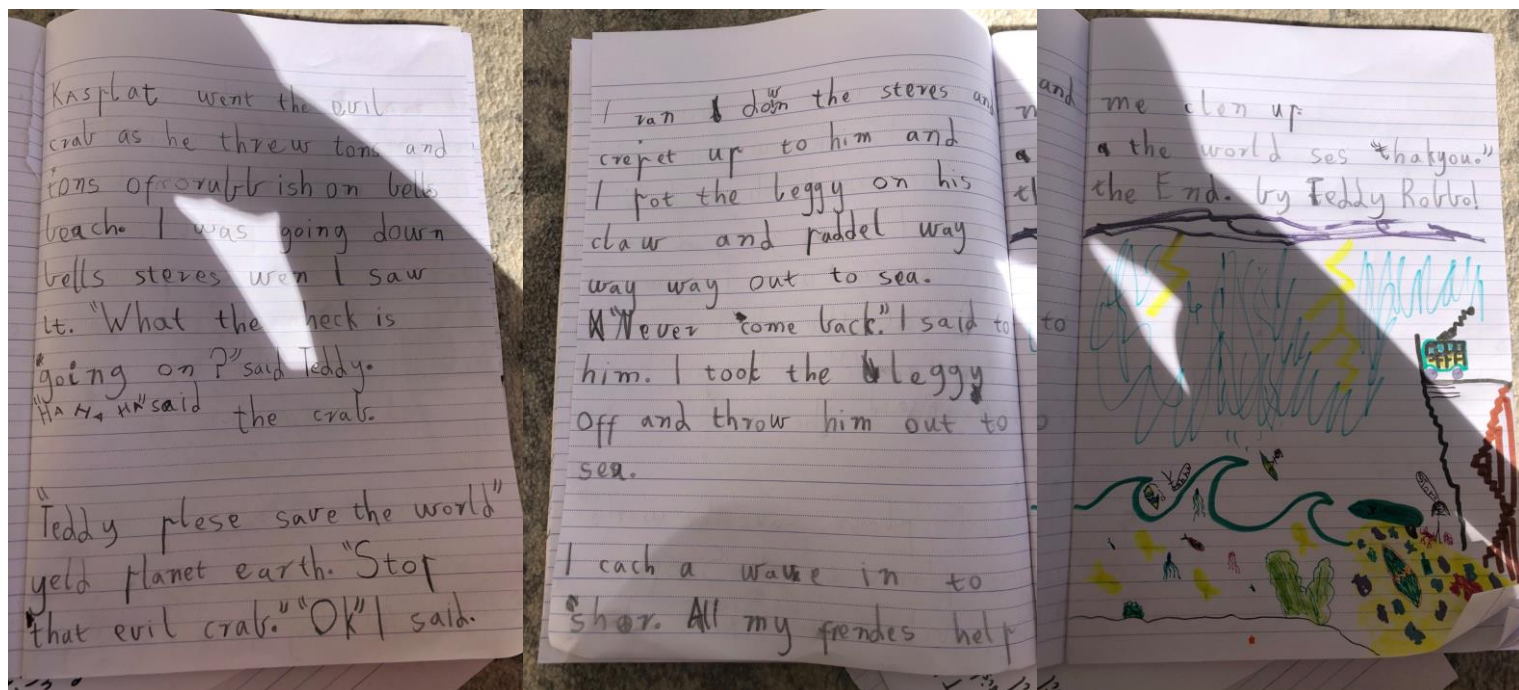 KAsplat went the evil
crab as he threw tons and
tons of rubb ish on bells
beach. I was going down
bells steres wen I saw
it. "What the heck is
going on?" said Teddy.
"HA HA HA" said the crab.
"Teddy plese save the world"
yeld planet earth. "Stop
that evil crab." "Ok" I said.
I ran down the steres and
crepet up to him and
I pot the leggy on his
claw and paddel way
way way out to sea.
"Never come back." I said to
him. I took the leggy
off and throw him out to
sea.
I cach a wave in to
shor. All my frendes help
and me clen up
the world ses "thakyou."
the End. by Teddy Robbo!